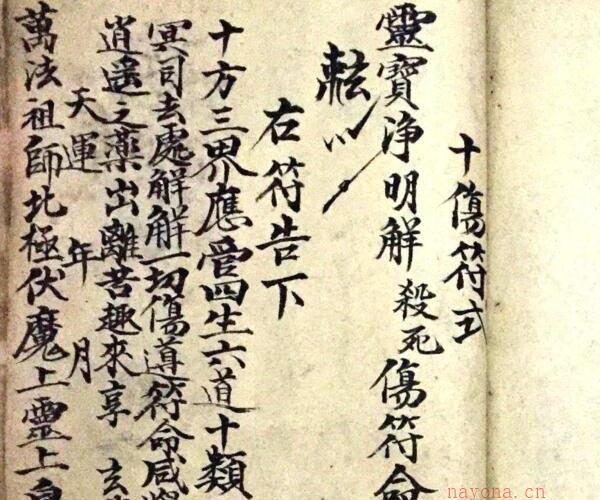 十傷符式
靈寶淨明解殺死傷符命
右符告下
十方三界應管四生六道十類
冥司去處解解一切傷遵符命咸
逍遥之藥出離苦趣來享
天運年月
萬法祖師北極伏魔上靈上
nayona.cn